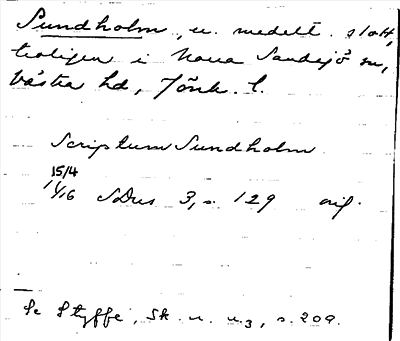 Sundholm, u. medelt. slott,
troligen i Norra Sandsjö sn,
Västra hd, Jönk. l.
Scriptum Sundholm
15/4
1416 SDns 3, s. 129 orig.
Se Styffe, Sk. u. u.3, s. 209.